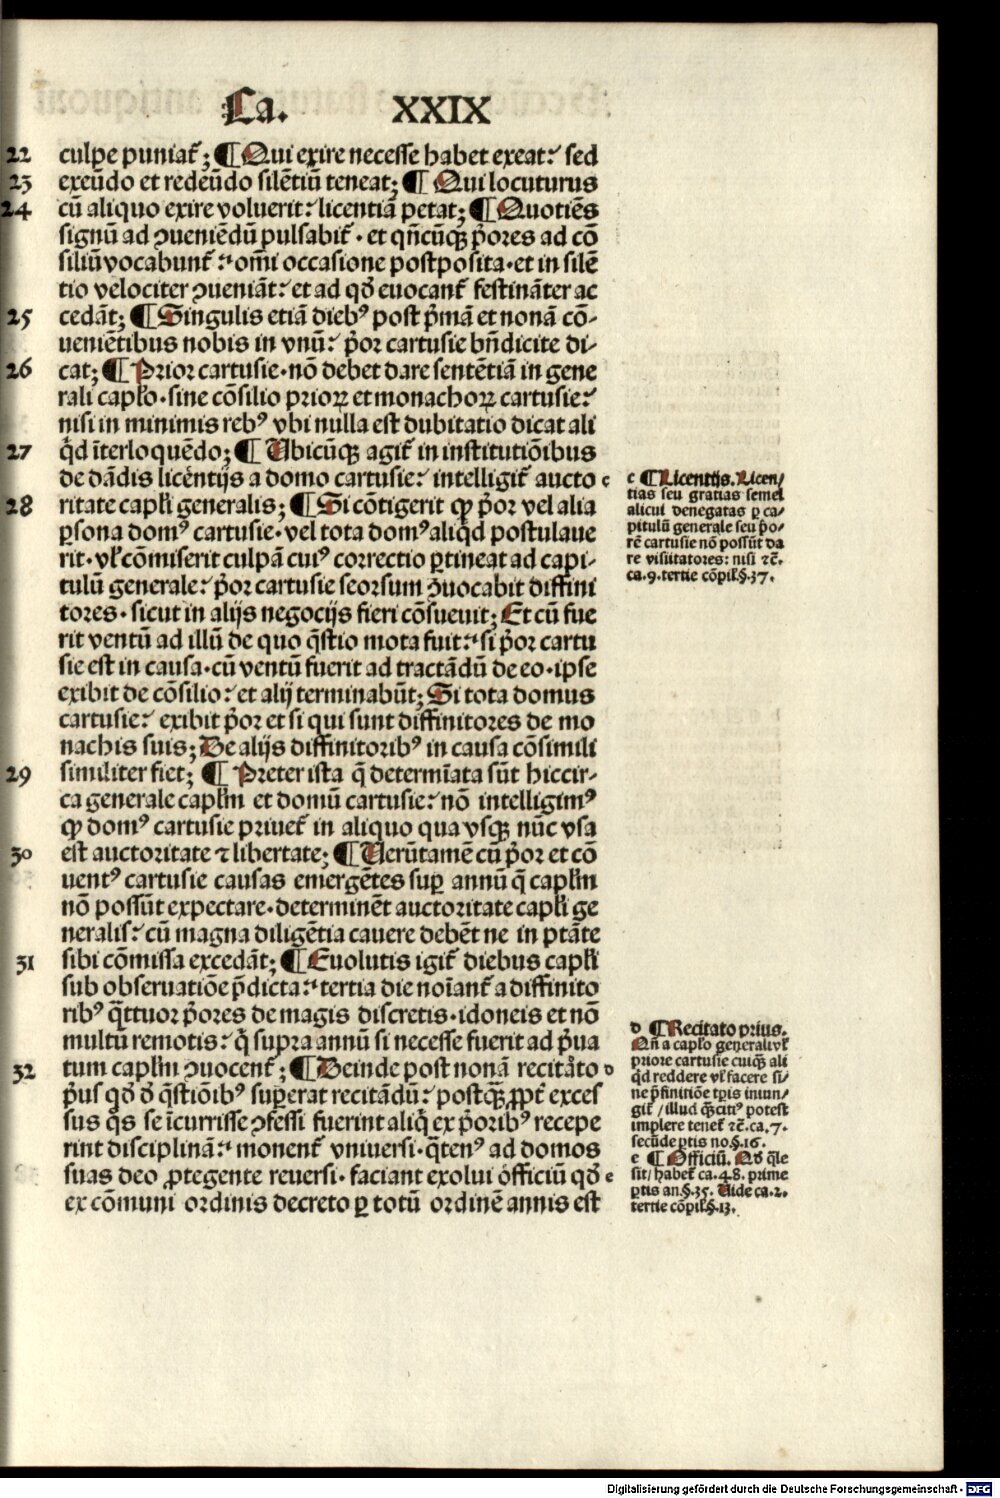 Ca. XXIX
22 culpe puniat᷑; ¶ Qui exire necesse habet exeat: sed
23 exeūdo et redeūdo silētiū teneat; ¶ Qui locuturus
24 cū aliquo exire voluerit: licentiā petat; ¶ Quotiēs
signū ad ꝯueniēdū pulsabit᷑ · et qn̄cūqꝫ p̄ores ad cō
siliū vocabunt᷑: om̄i occasione postposita · et in silē
tio velociter ꝯueniāt: et ad qd̄ euocant᷑ festināter ac
25 cedāt; ¶ Singulis etiā dieb⁹ post p̄mā et nonā cō-
ueniētibus nobis in vnū: p̄or cartusie bn̄dicite di-
26 cat; ¶ Prior cartusie · nō debet dare sentētiā in gene
rali capl̄o · sine cōsilio prioꝝ et monachoꝝ cartusie:
nisi in minimis reb⁹ vbi nulla est dubitatio dicat ali
27 qd̄ īterloquēdo; ¶ Ubicūqꝫ agit᷑ in institutiōibus
de dādis licētijs a domo cartusie: intelligit᷑ aucto c
28 ritate capl̄i generalis; ¶ Si cōtigerit ꝙ p̄or vel alia
ꝑsona dom⁹ cartusie · vel tota dom⁹ aliqd̄ postulaue
rit · vl̄ cōmiserit culpā cui⁹ correctio ꝑtineat ad capi-
tulū generale: p̄or cartusie seorsum ꝯuocabit diffini
tores · sicut in alijs negocijs fieri cōsueuit; Et cū fue
rit ventū ad illū de quo q̄stio mota fuit: si p̄or cartu
sie est in causa · cū ventū fuerit ad tractādū de eo · ipse
exibit de cōsilio: et alij terminabūt; Si tota domus
cartusie: exibit p̄or et si qui sunt diffinitores de mo
nachis suis; De alijs diffinitorib⁹ in causa cōsimili
29 similiter fiet; ¶ Preter ista q̄ determīata sūt hiccir-
ca generale capl̄m et domū cartusie: nō intelligim⁹
ꝙ dom⁹ cartusie priuet᷑ in aliquo qua vsqꝫ nūc vsa
30 est auctoritate ⁊ libertate; ¶ Verūtamē cū p̄or et cō
uent⁹ cartusie causas emergētes suꝑ annū q̄ capl̄m
nō possūt expectare · determinēt auctoritate capl̄i ge
neralis: cū magna diligētia cauere debēt ne in ptāte
31 sibi cōmissa excedāt; ¶ Euolutis igit᷑ diebus capl̄i
sub obseruatiōe p̄dicta: tertia die noīant᷑ a diffinito
rib⁹ q̄ttuor p̄ores de magis discretis · idoneis et nō
multū remotis: q̄ supra annū si necesse fuerit ad p̄ua
32 tum capl̄m ꝯuocent᷑; ¶ Deinde post nonā recitāto d
p̄us qd̄ d̄ q̄stiōib⁹ suꝑerat recitādū: postqꝫ̄ ꝓpt᷑ exces
sus q̄s se īcurrisse ꝯfessi fuerint aliq̄ ex p̄orib⁹ recepe
rint disciplinā: monent᷑ vniuersi · q̄ten⁹ ad domos
suas deo ꝓtegente reuersi · faciant exolui officiū qd̄ e
ex cōmuni ordinis decreto ꝑ totū ordinē annis est
c ¶ Licentijs. Licen/
tias seu gratias semel
alicui denegatas ꝑ ca/
pitulū generale seu p̄o/
rē cartusie nō possūt da
re visitatores: nisi ⁊c̄.
ca.9. tertie cōpil.§.37.
d ¶ Recitato prius.
Qn̄ a capl̄o generali vl̄
priore cartusie cuiqꝫ ali
qd̄ reddere vl̄ facere si/
ne p̄finitiōe tp̄is iniun/
git᷑ / illud qꝫ̄cit⁹ potest
implere tenet᷑ ⁊c̄. ca.7.
secūde ꝑtis no.§.16.
e ¶ Officiū. Ad q̄le
sit / habet᷑ ca.48. prime
ꝑtis an.§.35. Vide ca.2.
tertie cōpil.§.13.
Digitalisierung gefördert durch die Deutsche Forschungsgemeinschaft - DFG